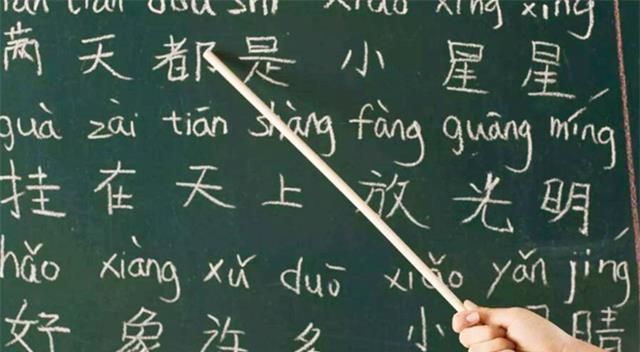 tian dou shi xiao xing xing
满天都是小星星
guà zài tiān shàng fàng guāng míng
挂在天上放光明
hǎo xiàng xǔ duō xiǎo yǎn jíng
好象许多小睛